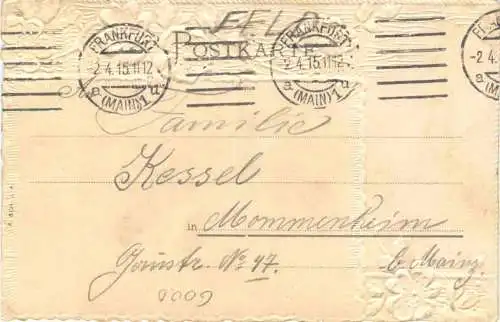 FELD
POSTKARTE
FRANKFURT
2.4.15.11-12
a. (MAIN) 1 u
FRANKFURT
2.4.15.11-12
a. (MAIN) 1 u
-2.4.
a. (MAIN
Familie
Kessel
in Mommenheim
Gaustr. No 47. b. Mainz.